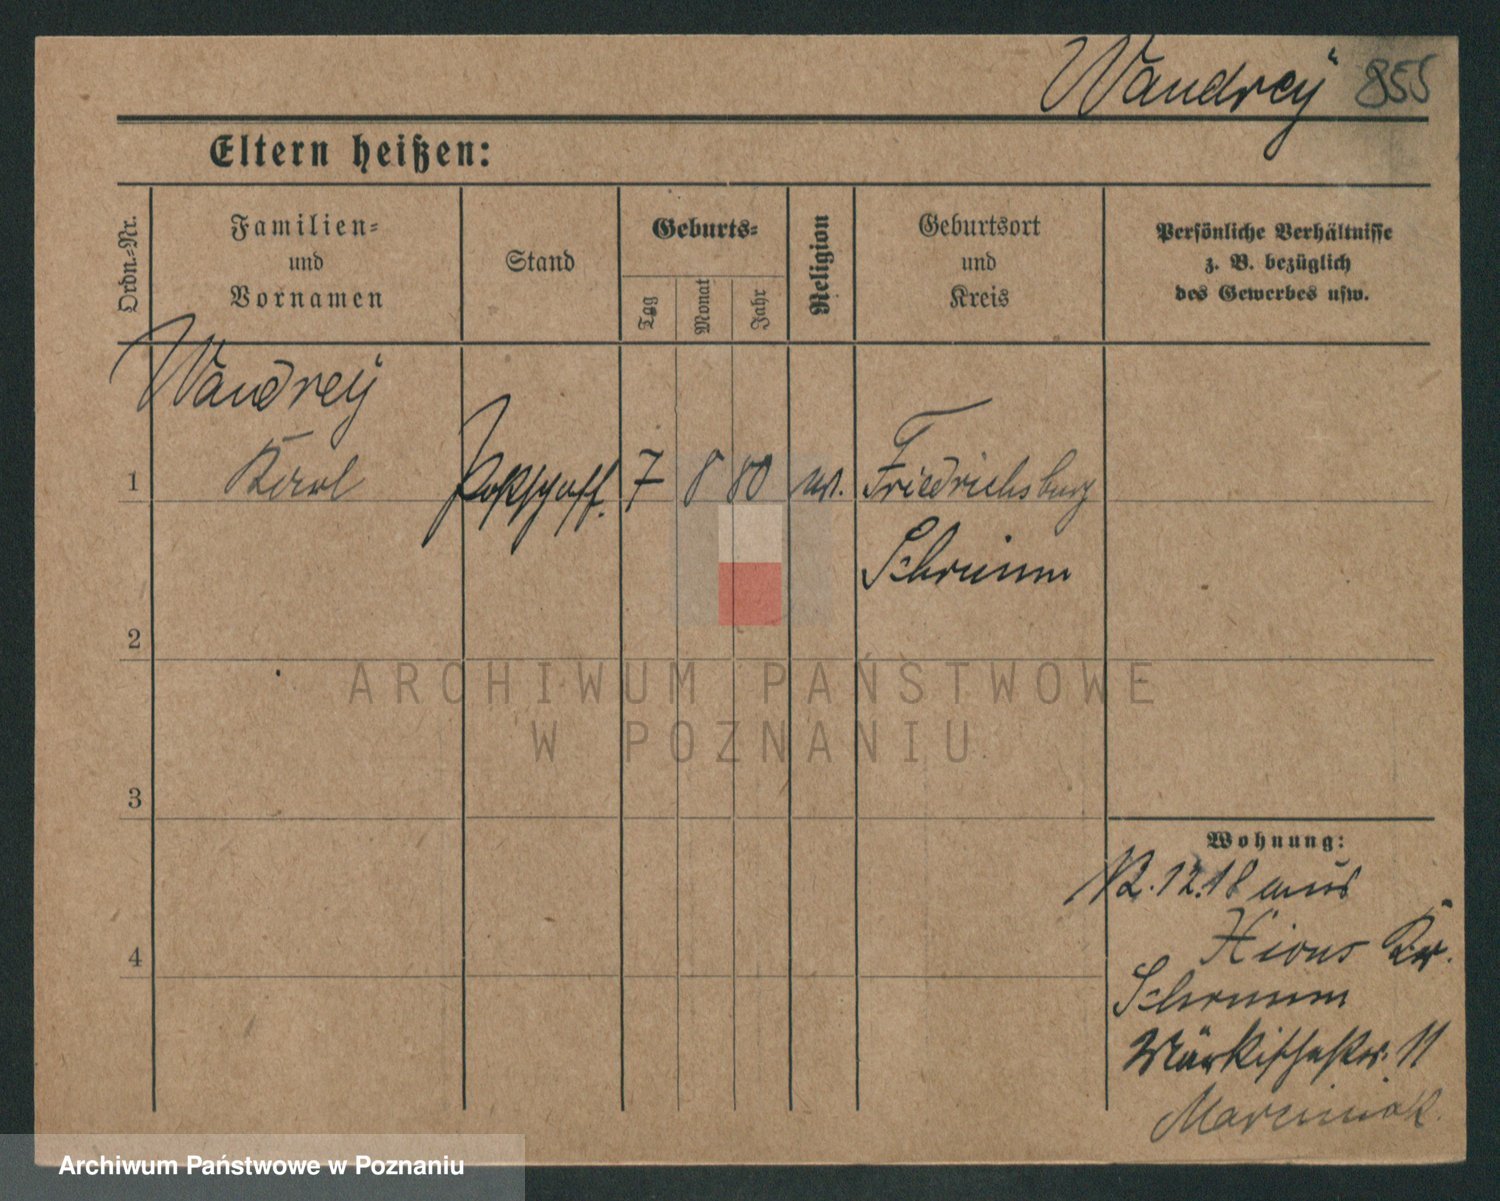 Wandrey 855
Eltern heißen:
Ordn.-Nr.
Familien-
und
Vornamen
Stand
Geburts-
Tag
Monat
Jahr
Religion
Geburtsort
und
Kreis
Persönliche Verhältnisse
z. B. bezüglich
des Gewerbes usw.
Wandrey
1 Karl 7 8 80 Friedrichsburg
Schrimm
2
ARCHIWUM PAŃSTWOWE
W POZNANIU
3
Wohnung:
12.18 aus
4 Xions Kr.
Schrimm
Märkischestr. 11
Marciniak.
Archiwum Państwowe w Poznaniu